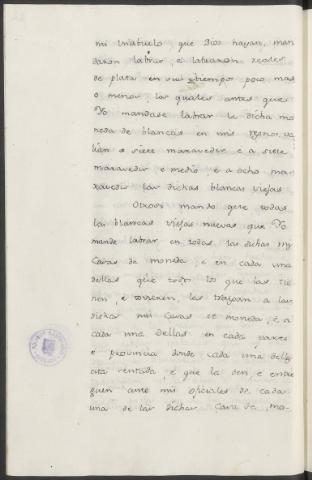 mi Visabuelo, que Dios hayan, man
daron labrar, e labraron reales
de plata en sus tiempos poco mas
o menos, los quales antes que
Yo mandase labrar la dicha mo
neda de blancas en mis Regnos, va
lian a siete maravedis, e a siete
maravedis e medio, e a ocho ma
ravedis las dichas blancas viejas.
Otrosi mando que todas
las blancas viejas nuevas que Yo
mande labrar en todas las dichas mis
Casas de moneda, e en cada una
dellas que todos los que las tie
nen, e tovieren, las traygan a las
dichas mis Casas de moneda, e a
cada una dellas en cada partes
e provincia donde cada una della
está rentada, e que la den, e entre
guen ante mis oficiales de cada
una de las dichas Casa de mo-